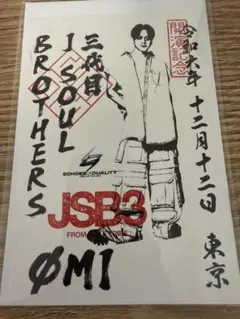 開演記念
令和六年 十二月十二日 東京
三代目
J SOUL
BROTHERS
ECHOES OF DUALITY
JSB3
ØMI